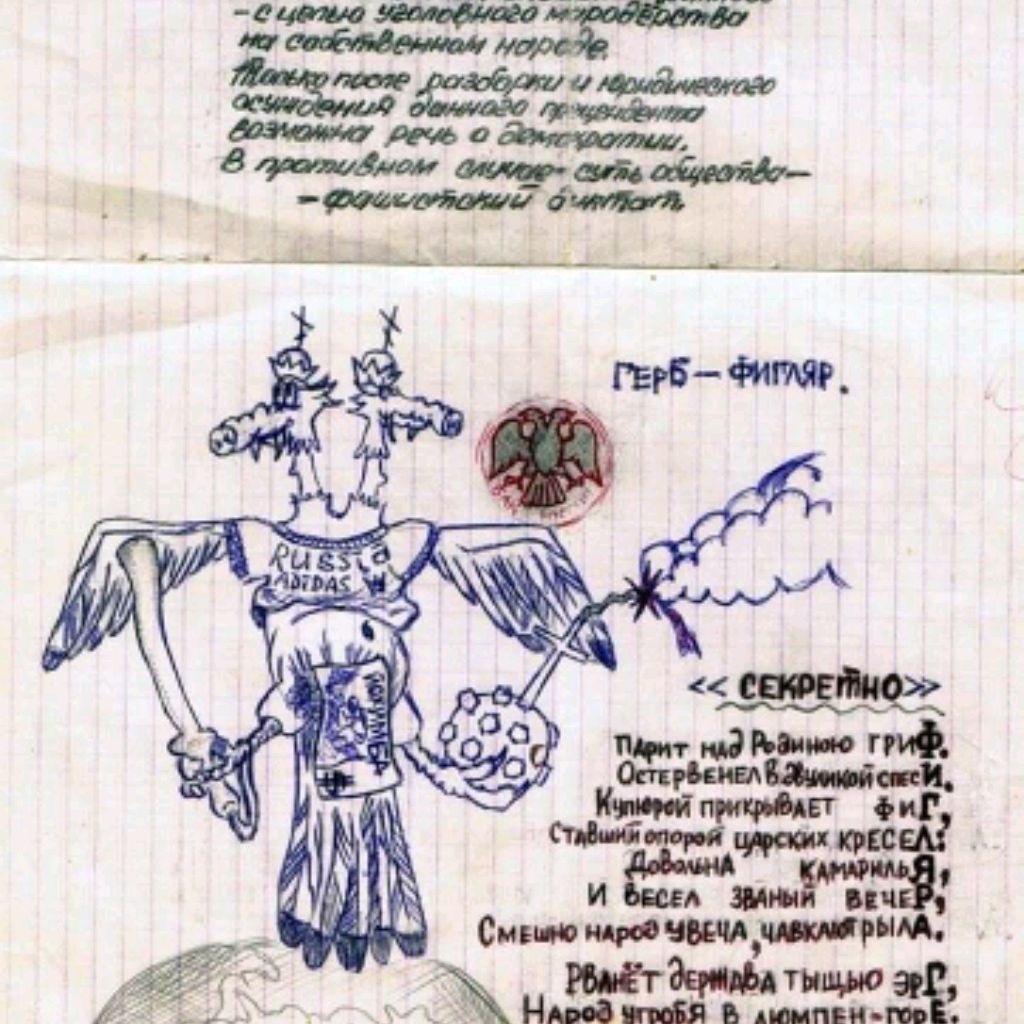 - с целью уголовного мародёрства
на собственном народе.
Только после разборки и юридического
осуждения данного прецендента
возможна речь о демократии.
В противном случае - суть общества -
- фашистский диктат.
ГЕРБ - ФИГЛЯР.
RUSSI
ADIDAS
<< СЕКРЕТНО >>
Парит над Родиною гриФ.
Остервенел в двуликой спесИ.
Купюрой прикрывает фиГ,
Ставший опорой царских кресеЛ:
Довольна камарильЯ,
И весел званый вечеР,
Смешно народ увеча, чавкают рылА.
Рванёт держава тыщью эрГ,
Народ угробя в люмпен-горЕ.